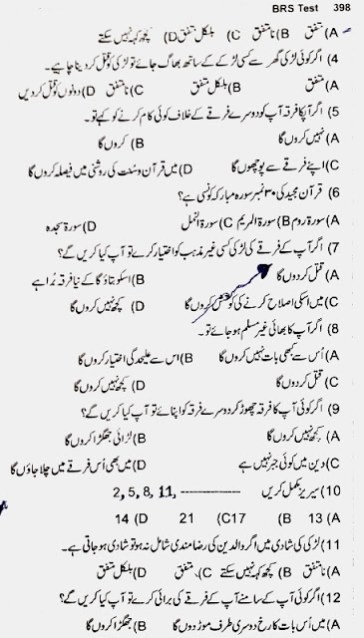 BRS Test 398
A) متفق B) نا متفق C) بلکل متفق D) کچھ کہہ نہیں سکتے
4) اگر کوئی لڑکی گھر سے کسی لڑکے کے ساتھ بھاگ جائے تو لڑکی کو قتل کر دینا چاہیے۔
A) متفق B) بلکل متفق C) نا متفق D) دونوں کو قتل کر دیں
5) اگر آپکا فرقہ آپ کو دوسرے فرقے کے خلاف کوئی کام کرنے کو کہے تو۔
A) نہیں کروں گا B) کروں گا
C) اپنے فرقے سے پوچھوں گا D) میں قرآن و سنت کی روشنی میں فیصلہ کروں گا
6) قرآن مجید کی ۳۰ نمبر سورہ مبارکہ کونسی ہے؟
A) سورۃ روم B) سورۃ المریم C) سورۃ النمل D) سورۃ سجدہ
7) اگر آپ کے فرقے کی لڑکی کسی غیر مذہب کو اختیار کرے تو آپ کیا کریں گے؟
A) قتل کر دوں گا B) اسکو بتاؤ گا کے نیا فرقہ بُرا ہے
C) میں اسکی اصلاح کرنے کی کوشش کروں گا D) کچھ نہیں کروں گا
8) اگر آپکا بھائی غیر مسلم ہو جائے تو۔
A) اُس سے کبھی بات نہیں کروں گا B) اس سے علیحدگی اختیار کروں گا
C) قتل کر دوں گا D) کچھ نہیں کروں گا
9) اگر کوئی آپ کا فرقہ چھوڑ کر دوسرے فرقہ کو اپنائے تو آپ کیا کریں گے؟
A) کچھ نہیں کروں گا B) لڑائی جھگڑا کروں گا
C) دین میں کوئی جبر نہیں ہے D) میں بھی اُس فرقے میں چلا جاؤں گا
10) سیریز مکمل کریں 2, 5, 8, 11, ------------
A) 13 B) 17 C) 21 D) 14
11) لڑکی کی شادی میں اگر والدین کی رضا مندی شامل نہ ہو تو شادی ہو جاتی ہے۔
A) نا متفق B) کچھ کہہ نہیں سکتے C) متفق D) بلکل متفق
12) اگر کوئی آپ کے سامنے آپ کے فرقے کی برائی کرے تو آپ کیا کریں گے؟
A) میں اُس بات کا رخ دوسری طرف موڑ دوں گا B) جھگڑا کروں گا